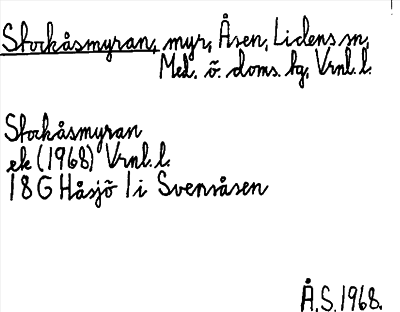 Stockåsmyran, myr, Åsen, Lidens sn,
Med. ö. doms. hg, Vrnl. l.
Stockåsmyran
ek (1968) Vrnl. l.
18G Håsjö 1i Svensåsen
Å.S. 1968.